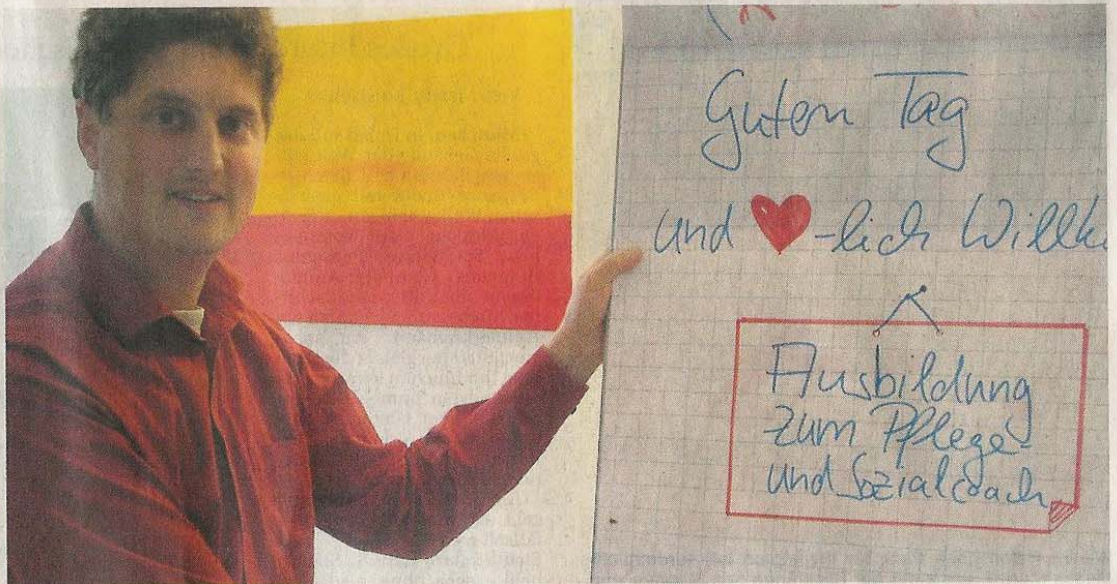 Guten Tag
und ♥-lich Willk
Ausbildung
zum Pflege-
und Sozialcoach